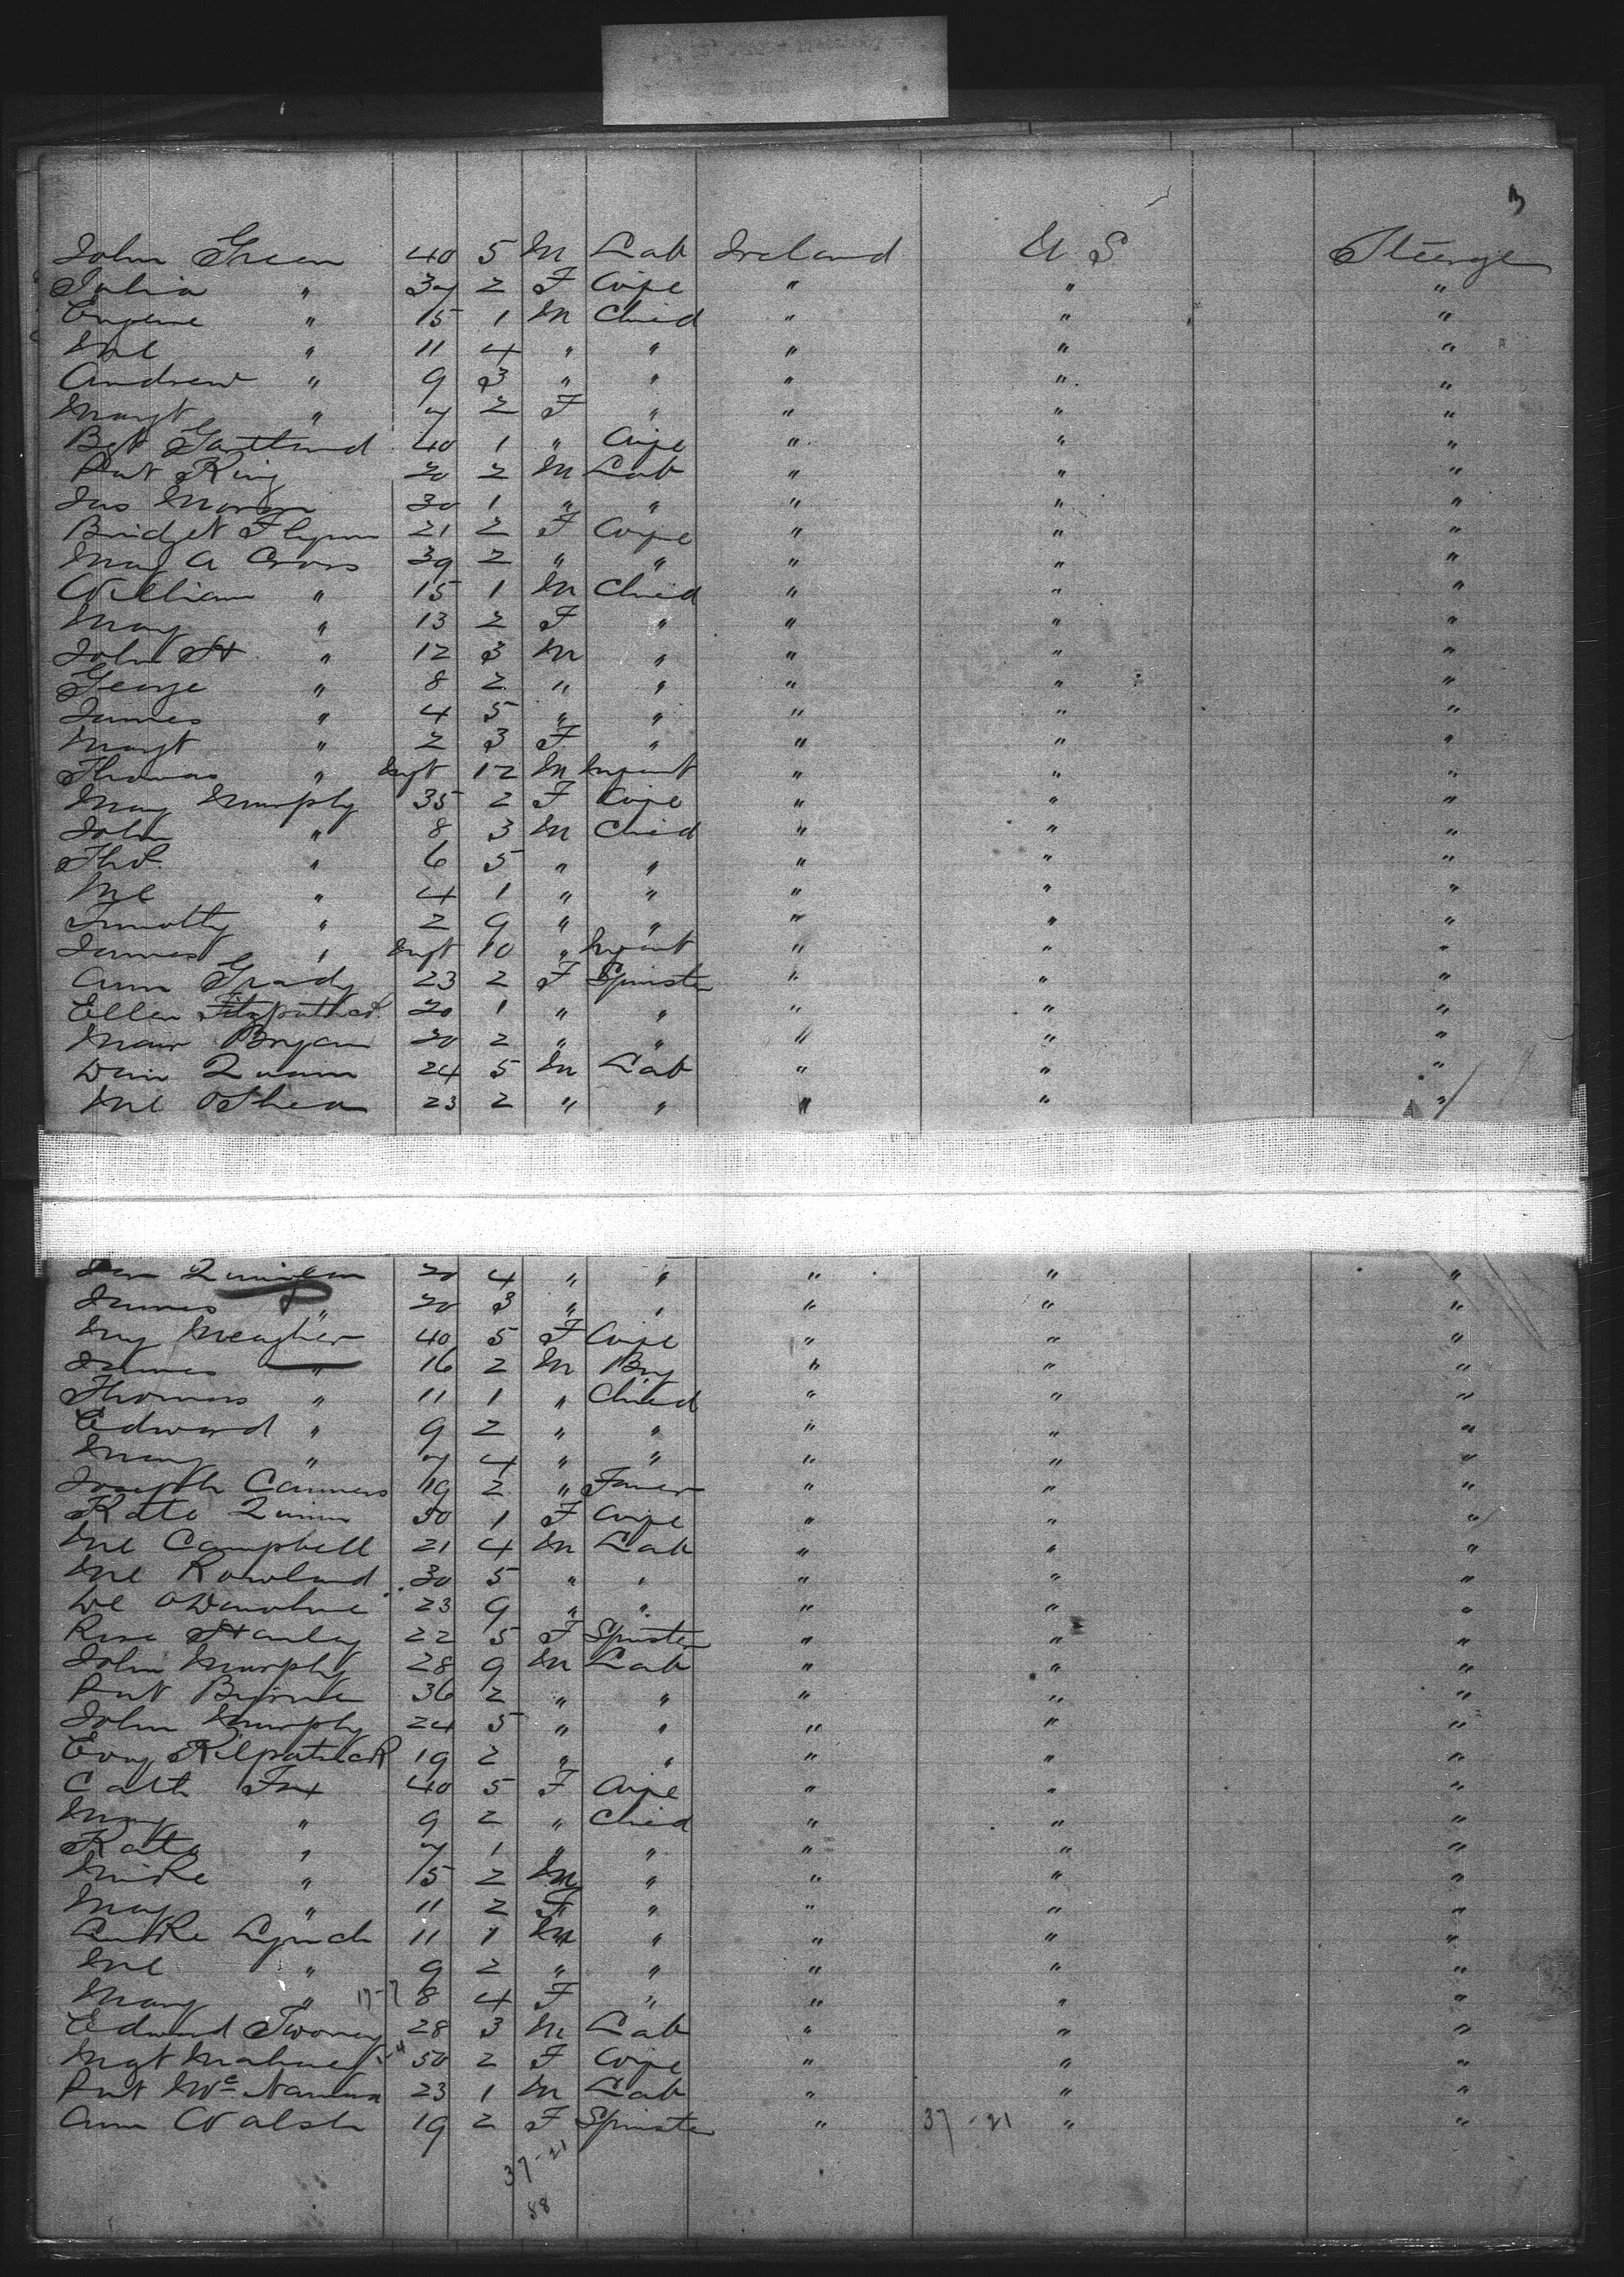 3
John Green 40 5 M Lab Ireland U S Steerage
Julia " 37 2 F Wife " " "
Eugene " 15 1 M Child " " "
Ml " 11 4 " " " " "
Andrew " 9 3 " " " " "
Margt " 7 2 F " " " "
Bgt Gartland 40 1 " Wife " " "
Pat King 20 2 M Lab " " "
Jas Moran 30 1 " " " " "
Bridget Flynn 21 2 F Wife " " "
Mary A Cross 39 2 " " " " "
William " 15 1 M Child " " "
Mary " 13 2 F " " " "
John H " 12 3 M " " " "
George " 8 2 " " " " "
James " 4 5 " " " " "
Margt " 2 3 F " " " "
Thomas " Inft 12 M Infant " " "
Mary Murphy 35 2 F Wife " " "
John " 8 3 M Child " " "
Thos " 6 5 " " " " "
Ml " 4 1 " " " " "
Timothy " 2 9 " " " " "
James " Inft 10 " Infant " " "
Ann Grady 23 2 F Spinster " " "
Ellen Fitzpatrick 20 1 " " " " "
Mary Bryan 20 2 " " " " "
Wm Quinn 24 5 M Lab " " "
Ml OShea 23 2 " " " " "
Quinlan 20 4 " " " " "
James " 20 3 " " " " "
My Meagher 40 5 F Wife " " "
James " 16 2 M Boy " " "
Thomas " 11 1 " Child " " "
Edward " 9 2 " " " " "
Mary " 7 4 " " " " "
Joseph Canners 19 2 " Farmer " " "
Kate Quinn 50 1 F Wife " " "
Ml Campbell 21 4 M Lab " " "
Ml Rowland 30 5 " " " " "
ODonohue 23 9 " " " " "
Rose Hanley 22 5 F Spinster " " "
John Murphy 28 9 M Lab " " "
Pat Byrne 36 2 " " " " "
John Murphy 24 5 " " " " "
Kilpatrick 19 2 " " " " "
Cath Fox 40 5 F Wife " " "
Mary " 9 2 " Child " " "
Kate " 7 1 " " " " "
Mike " 15 2 M " " " "
May " 11 2 F " " " "
Lynch 11 1 M " " " "
Ml " 9 2 " " " " "
Mary " 17-7 8 4 F " " " "
Edward Twomey 28 3 M Lab " " "
Mgt Mahoney 50 2 F Wife " " "
Pat McNamara 23 1 M Lab " " "
Ann Walsh 19 2 F Spinster " 37-21 " "
37-21
58